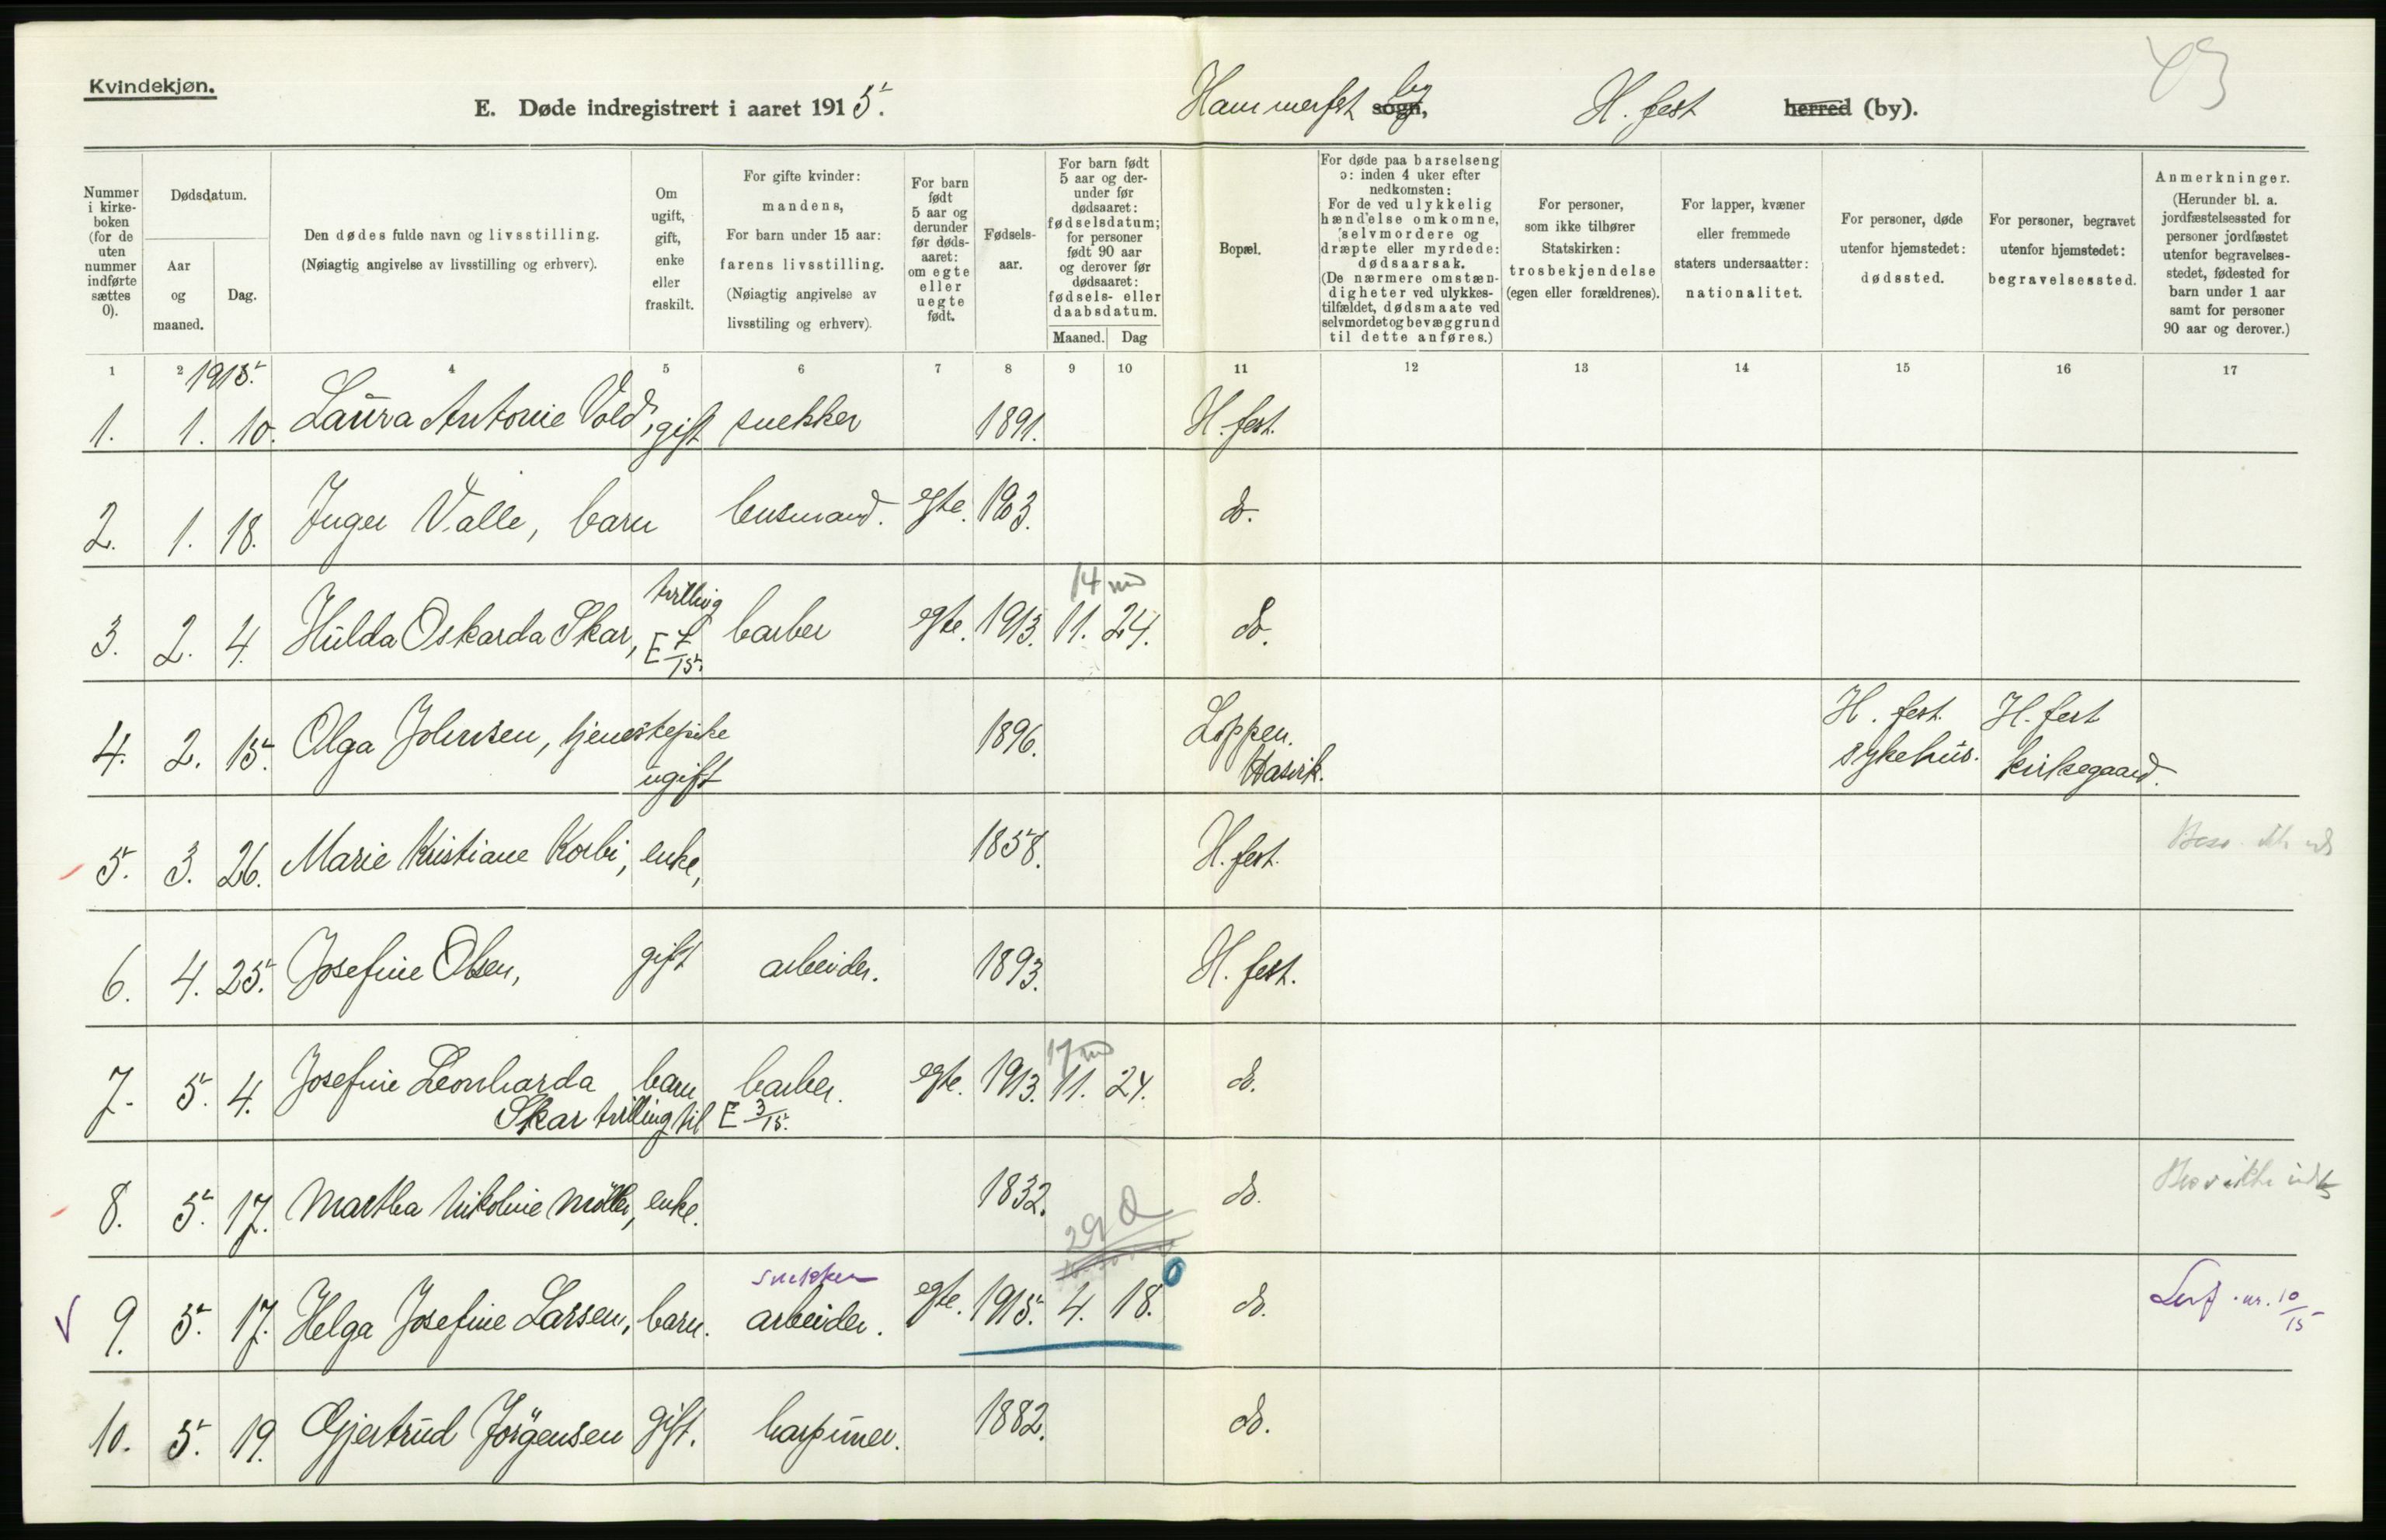 Kvindekjøn.
E. Døde indregistrert i aaret 1915. Hammerfest sogn, by H. fest herred (by).
43
Nummer i kirkeboken (for de uten nummer indførte sættes 0).
Dødsdatum.
Aar og maaned.
Dag.
Den dødes fulde navn og livsstilling.
(Nøiagtig angivelse av livsstilling og erhverv).
Om ugift, gift, enke eller fraskilt.
For gifte kvinder: mandens,
For barn under 15 aar: farens livsstilling.
(Nøiagtig angivelse av livsstiling og erhverv).
For barn født 5 aar og derunder før dødsaaret: om egte eller uegte født.
Fødselsaar.
For barn født 5 aar og derunder før dødsaaret: fødselsdatum; for personer født 90 aar og derover før dødsaaret: fødsels- eller daabsdatum.
Maaned. Dag
Bopæl.
For døde paa barselseng ɔ: inden 4 uker efter nedkomsten:
For de ved ulykkelig hændelse omkomne, selvmordere og dræpte eller myrdede: dødsaarsak.
(De nærmere omstændigheter ved ulykkestilfældet, dødsmaate ved selvmordet og bevæggrund til dette anføres.)
For personer, som ikke tilhører Statskirken: trosbekjendelse (egen eller forældrenes).
For lapper, kvæner eller fremmede staters undersaatter: nationalitet.
For personer, døde utenfor hjemstedet: dødssted.
For personer, begravet utenfor hjemstedet: begravelsessted.
Anmerkninger.
(Herunder bl. a. jordfæstelsessted for personer jordfæstet utenfor begravelsesstedet, fødested for barn under 1 aar samt for personer 90 aar og derover.)
1 2 4 5 6 7 8 9 10 11 12 13 14 15 16 17
1915.
1. 1. 10. Laura Antonie Vold, gift snekker 1891. H. fest.
2. 1. 18. Inger Valle, barn busmand. egte. 1903. do.
trilling 14 md
3. 2. 4. Hulda Oskarda Skar, E 7/15. barber egte. 1913. 11. 24. do.
4. 2. 15. Olga Johnsen, tjenestepike ugift 1896. Loppen. Hasvik. H. fest. sykehus. H. fest kirkegaard.
5. 3. 26. Marie Kristiane Korbi, enke, 1858. H. fest.
6. 4. 25. Josefine Olsen, gift arbeider. 1893. H. fest.
17 md
7. 5. 4. Josefine Leonharda barn barber. egte. 1913. 11. 24. do.
Skar trilling til E 3/15.
8. 5. 17. Martha Nikoline Möller, enke. 1832. do.
29 d
snekker 0
9. 5. 17. Helga Josefine Larsen, barn. arbeider. egte. 1915. 4. 18. do. nr. 10/15
10. 5. 19. Gjertrud Jörgensen gift. harpuner. 1882. do.